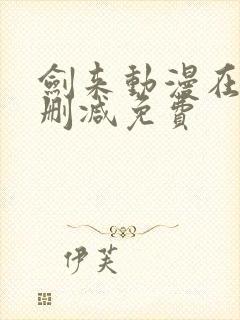 劍来動漫在
刪減免費
伊芙